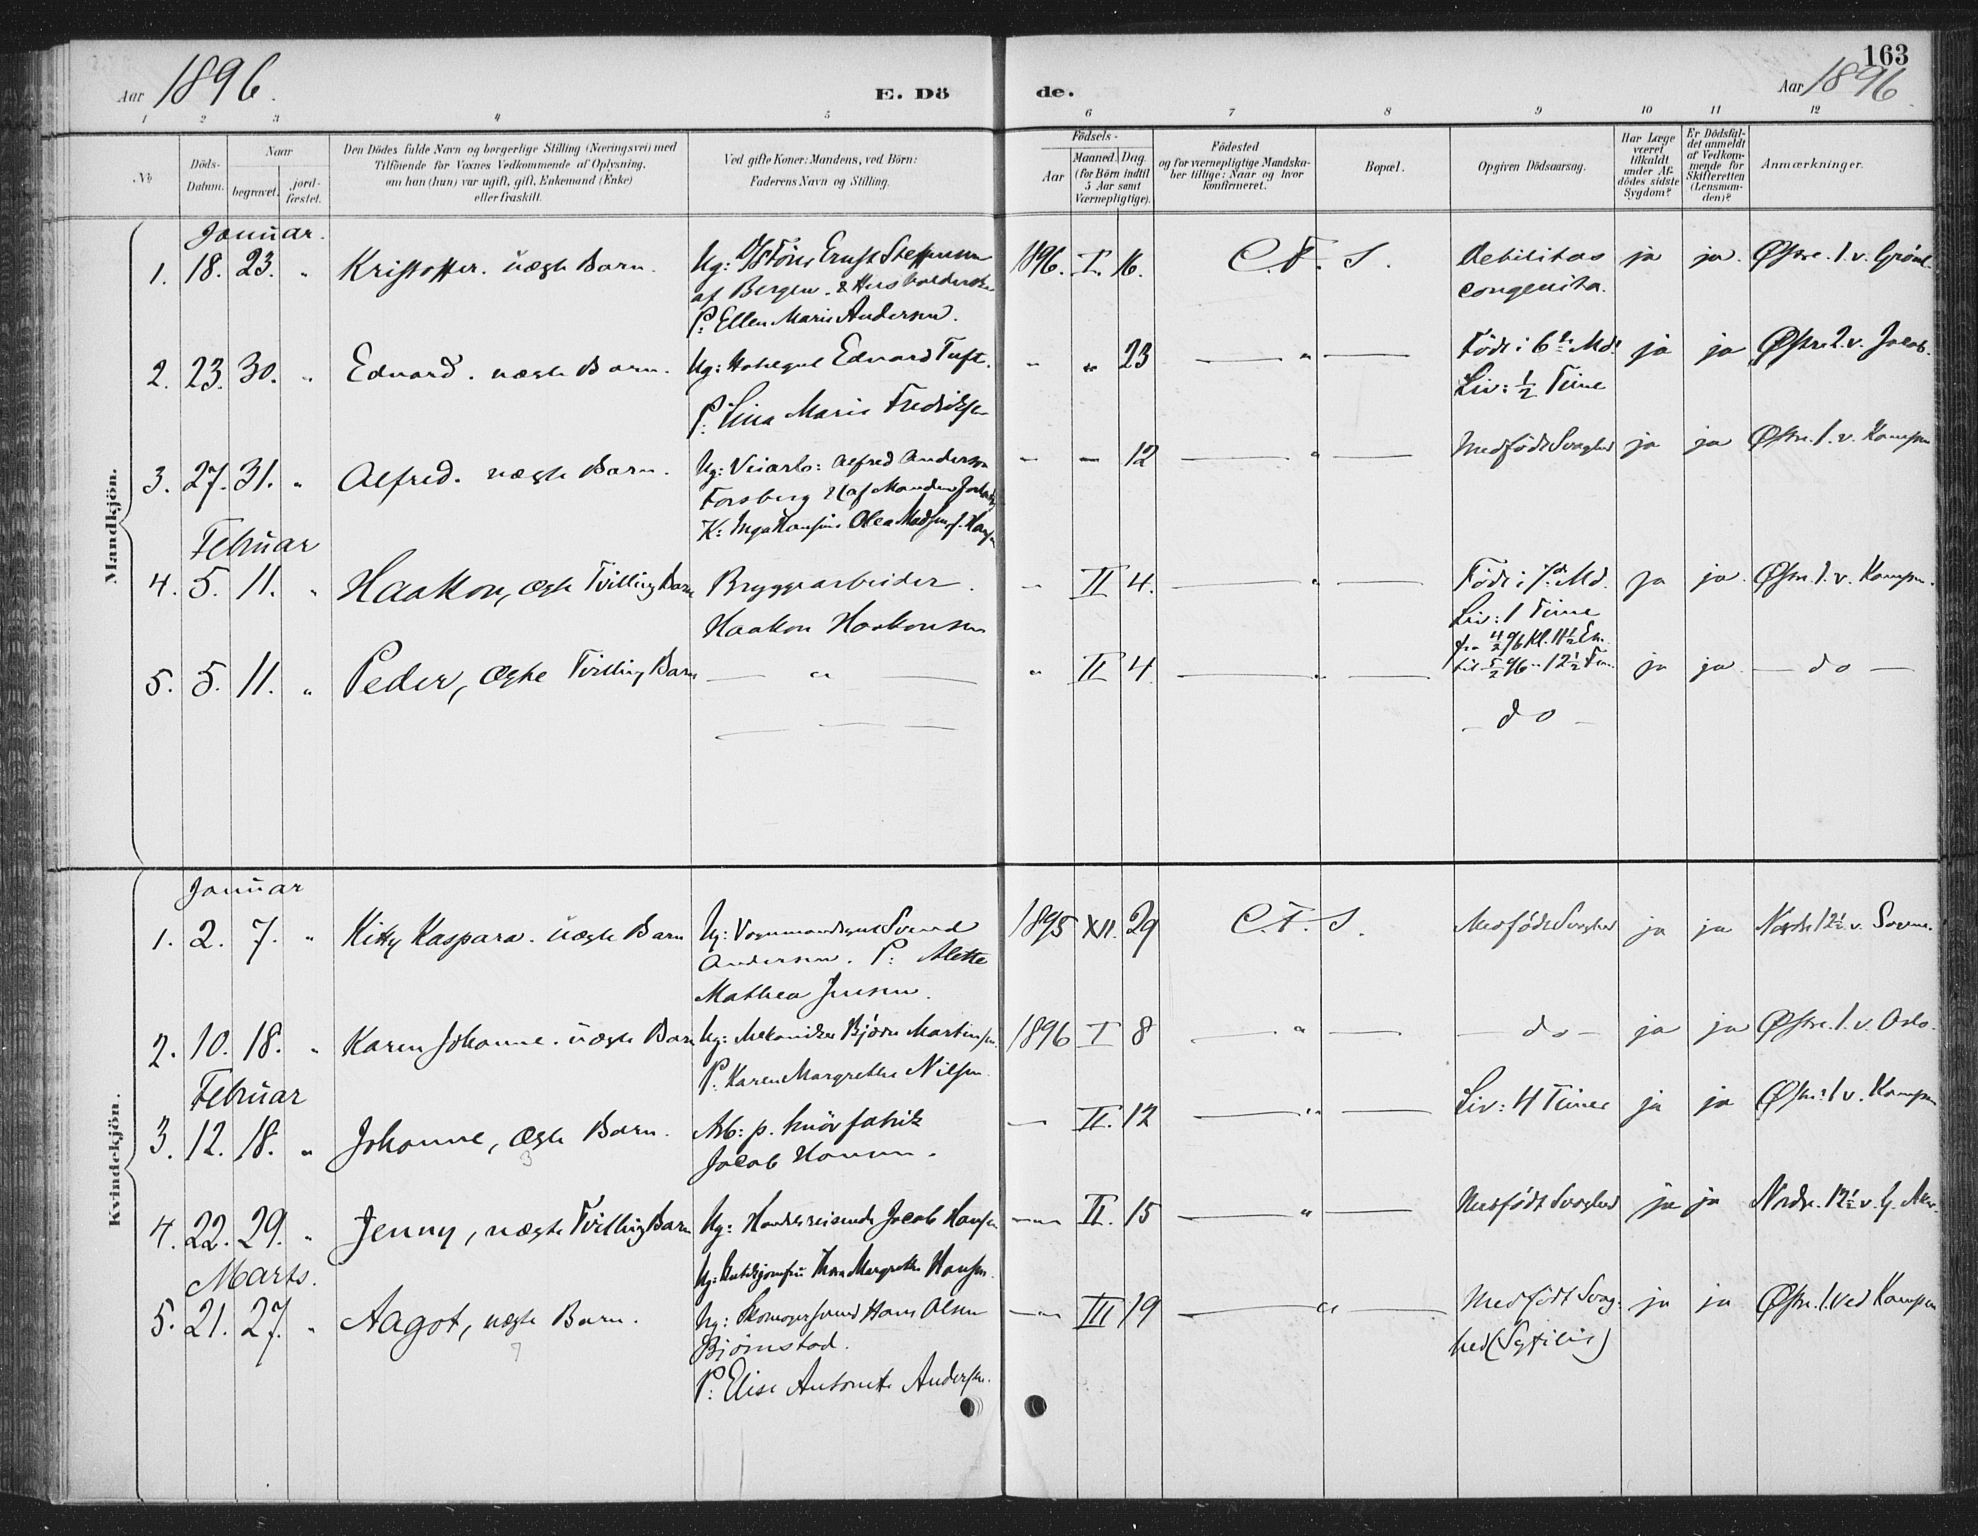 163
Aar 1896. E. Dö de. Aar 1896.
1 2 3 4 5 6 7 8 9 10 11 12
No
Döds-Datum.
Naar
begravet.
jord-fæstet.
Den Dödes fulde Navn og borgerlige Stilling (Næringsvei) med
Tilföiende for Voxnes Vedkommende af Oplysning,
om han (hun) var ugift, gift, Enkemand (Enke)
eller fraskilt.
Ved gifte Koner: Mandens, ved Börn:
Faderens Navn og Stilling.
Födsels-
Aar
Maaned. Dag.
(for Börn indtil
5 Aar samt
Værnepligtige).
Födested
og for værnepligtige Mandska-
ber tillige: Naar og hvor
konfirmeret.
Bopæl.
Opgiven Dödsaarsag.
Har Læge
været
tilkaldt
under Af-
dödes sidste
Sygdom?
Er Dödsfal-
det anmeldt
af Vedkom-
mende for
Skifteretten
(Lensman-
den)?
Anmærkninger.
Mandkjön.
Januar.
1. 18. 23. " Kristoffer. uægte Barn. Ug: Ernst Steffensen 1896. I. 16. C. F. S. Debilitas ja ja. Østre. 1. v. Grønl.
af Bergen. & congenita.
P: Ellen Marie Andersen.
2. 23. 30. " Edvard. uægte Barn. Ug: Edvard Tuft. " " 23 — " — Født i 6te Md. ja ja Østre 2. v. Jacob.
P: Lina Marie Fredriksen Liv: ½ Time
3. 27. 31. " Alfred. uægte Barn. Ug: Alfred Anderson – – 12 — " — Medfødt Svaghed ja ja Østre. 1. v. Kampen
Forsberg
K: Inga Olea
Februar
4. 5. 11. " Haakon, ægte Tvilling Barn Bryggearbeider – II 4. — " — Født i 7de Md. ja ja. Østre 1. v. Kampen.
Haakon Haakonsen Liv: 1 Time
fra 4/2 96 Kl. 11½ Em.
5. 5. 11. " Peder, ægte Tvilling Barn — " — " II 4 — " — til 5/2 96 " 12½ Fm. ja ja — do —
— do —
Kvindekjön.
Januar
1. 2. 7. " Kitty Kaspara. uægte Barn Ug: Svend 1895 XII. 29 C. F. S. Medfødt Svaghed ja ja Nordre 12½ v.
Andersen. P: Alette
Mathea Jensen.
2. 10. 18. " Karen Johanne. uægte Barn Ug: Mekaniker Bjørn Martinsen. 1896 I 8 — " — — do — ja ja Østre. 1. v. Oslo.
P. Karen Margrethe Nilsen.
Februar
3. 12. 18. " Johanne, ægte Barn. Arb: p. fabrik — II. 12 — " — Liv: 4 Timer ja ja Østre 1 v. Kampen
3 Jacob Hansen.
4. 22. 29. " Jenny, uægte Tvilling Barn Ug: Handelsreisende Jacob Hansen — II. 15 — " — Medfødt Svaghed ja ja Nordre. 12½ v. G. Aker.
Ug: Margrethe Hansen.
Marts.
5. 21. 27. " Aagot, uægte Barn. Ug: Skomagersvend Hans Olsen — III 19 — " — Medfødt Svag- ja ja Østre. 1 ved Kampen
7 Bjørnstad. hed (Syfilis)
P: Elise Antonette Andersen.